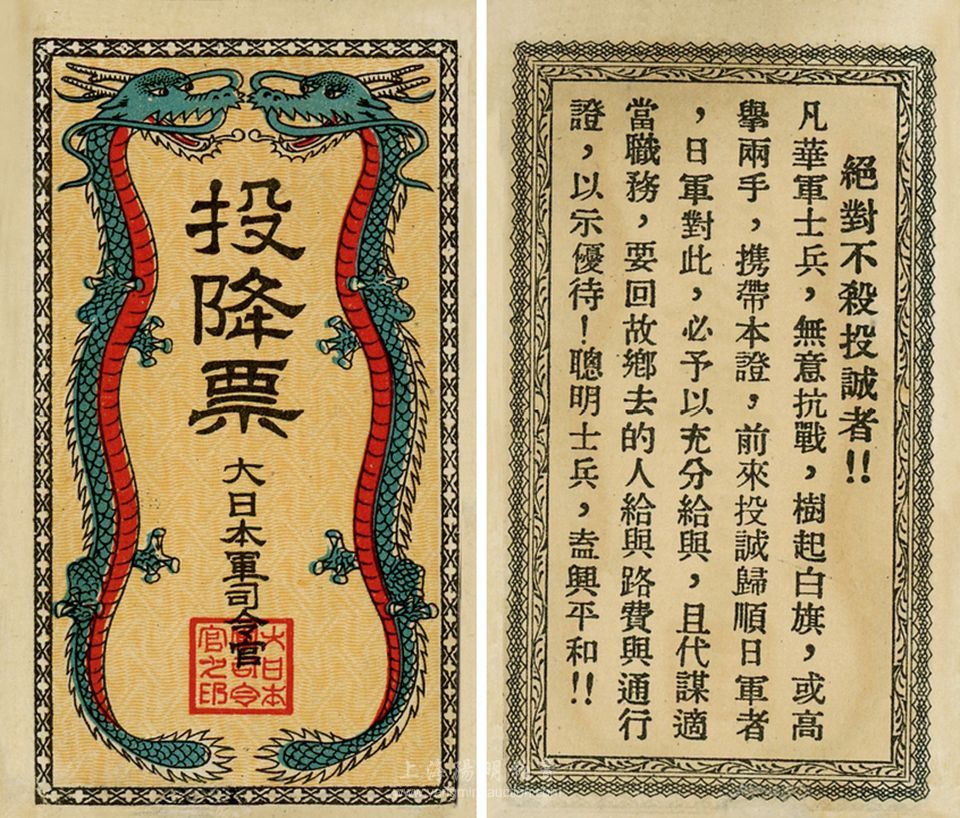 投降票
大日本軍司令官
大日本
軍司令
官之印
絕對不殺投誠者!!
凡華軍士兵,無意抗戰,樹起白旗,或高
舉兩手,携帶本證,前來投誠歸順日軍者
,日軍對此,必予以充分給與,且代謀適
當職務,要回故鄉去的人給與路費與通行
證,以示優待!聰明士兵,盍興平和!!
上海陽明
www.yangmingauction.com